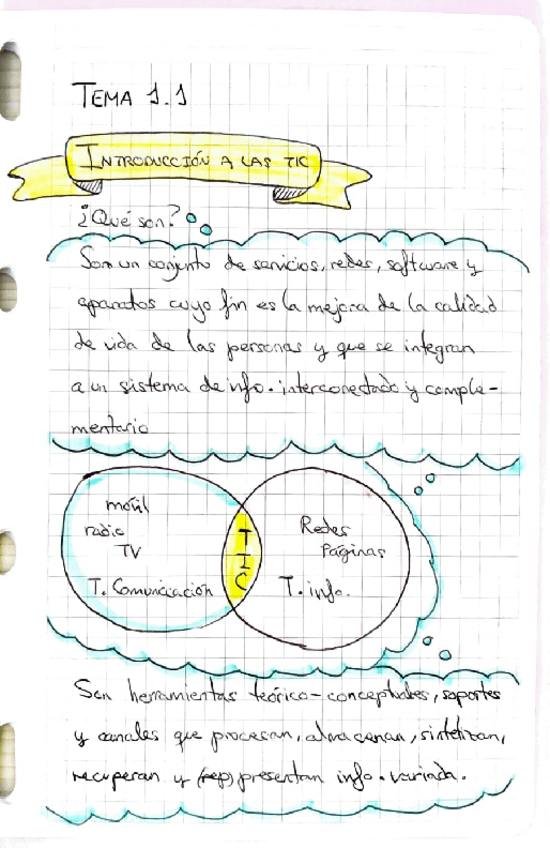 TEMA 1.1
INTRODUCCIÓN A LAS TIC
¿Qué son?
Son un conjunto de servicios, redes, software y
aparatos cuyo fin es la mejora de la calidad
de vida de las personas y que se integran
a un sistema de info. interconectado y comple-
mentario
móvil
radio
TV
T. Comunicación
TIC
Redes
Páginas
T. info.
Son herramientas teórico-conceptuales, soportes
y canales que procesan, almacenan, sintetizan,
recuperan y (rep)presentan info. variada.